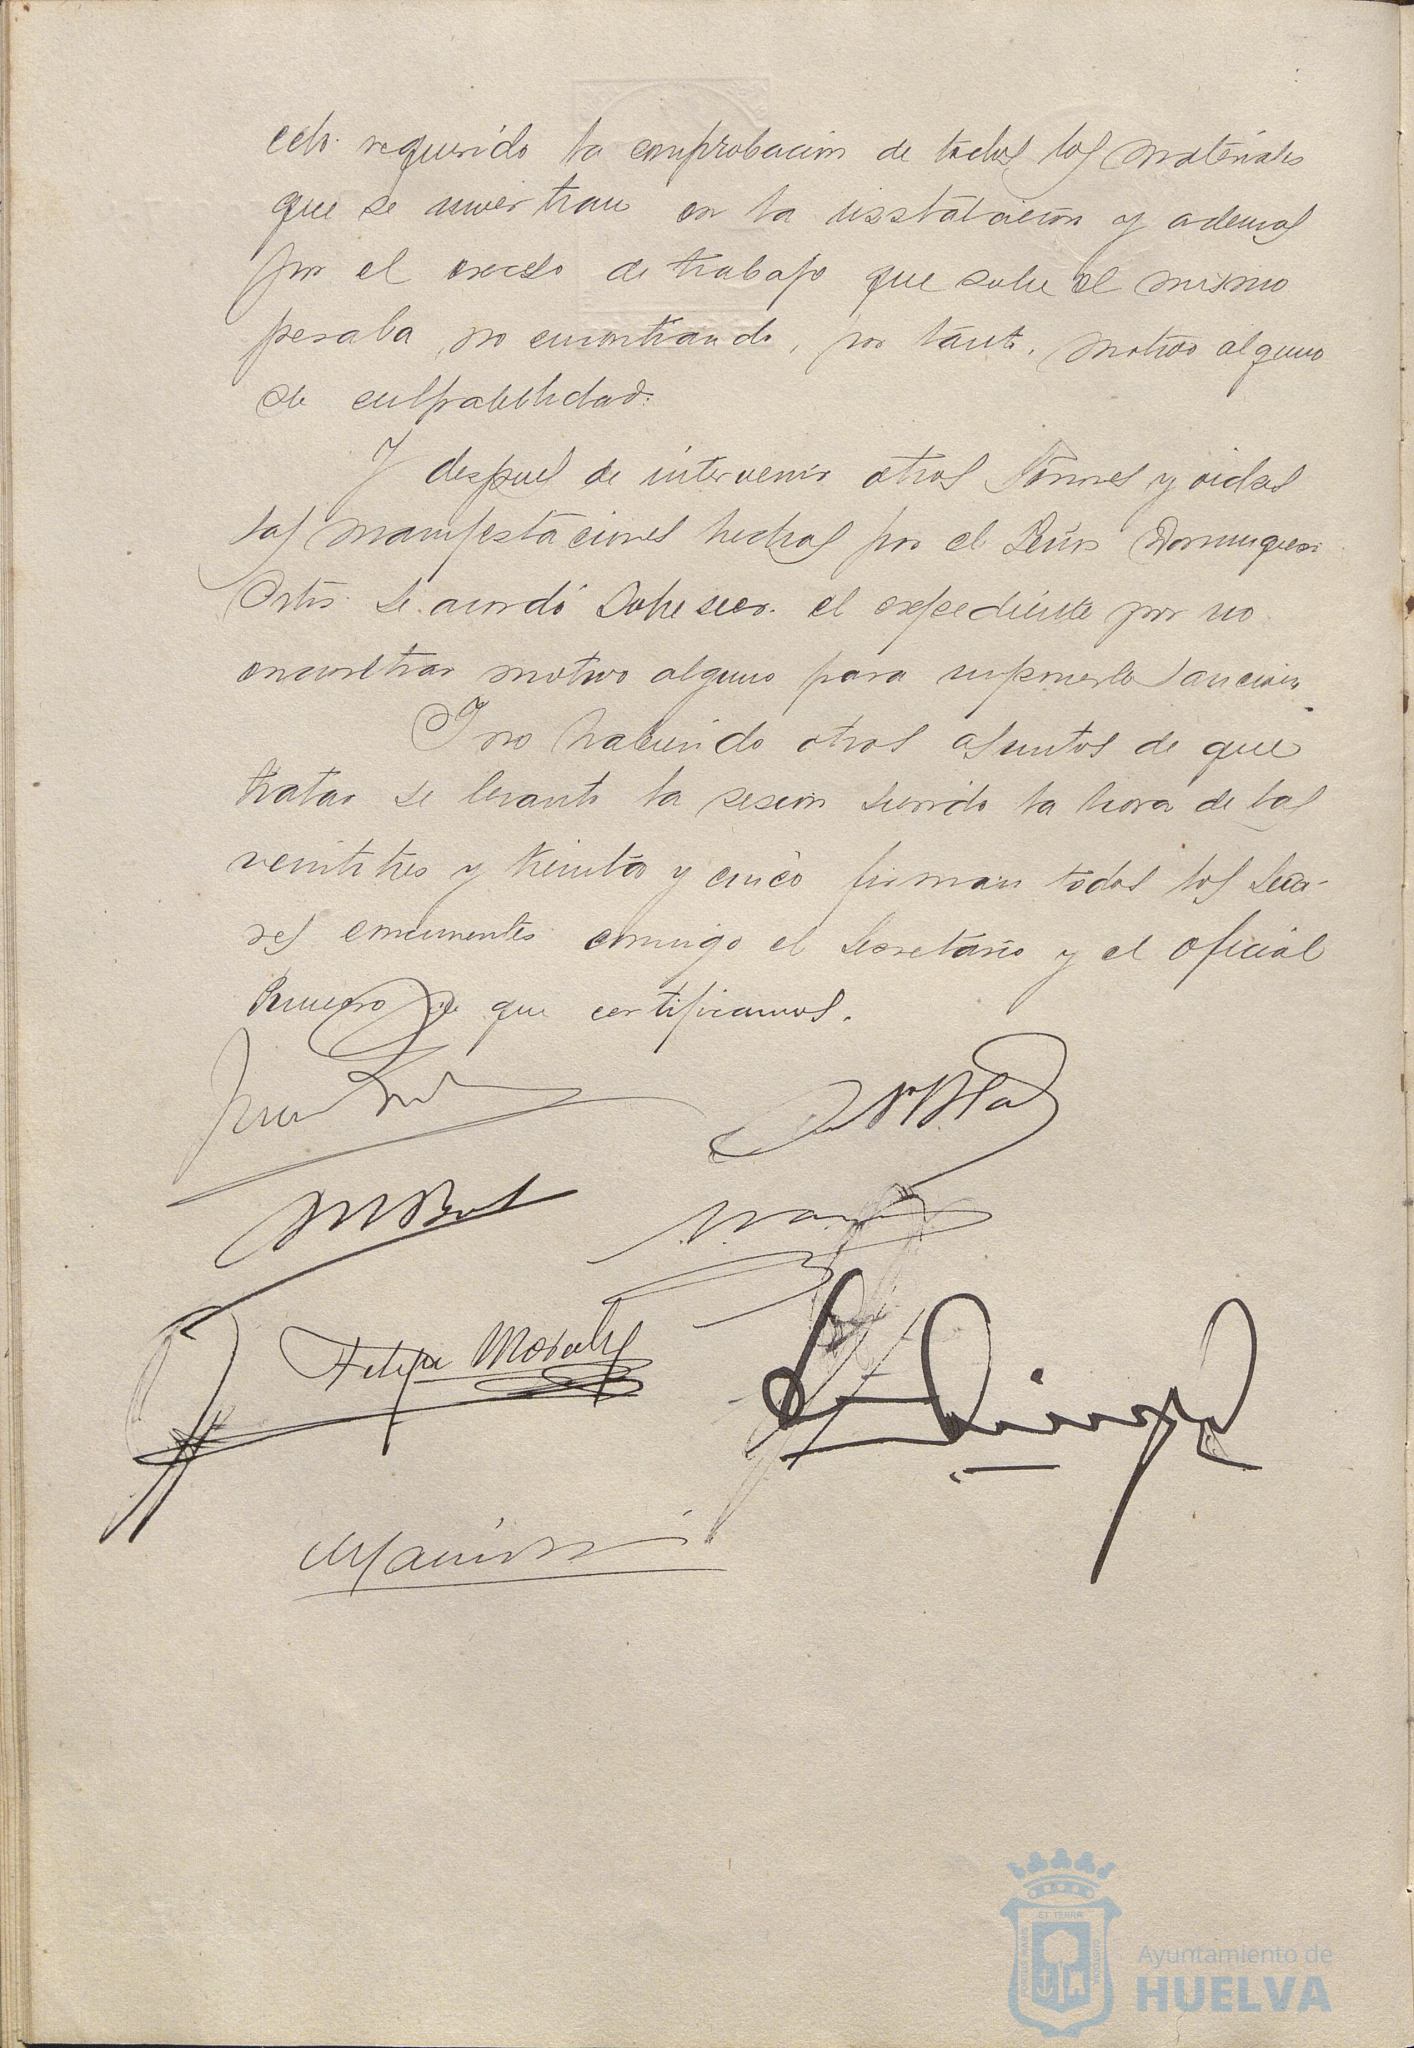 requerido la comprobación de todos los materiales
que se inviertan en la instalación y ademas
por el exceso de trabajo que sobre el mismo
pesaba, no encontrando, por tanto, motivo alguno
de culpabilidad.
Y despues de intervenir otros Señores y oidas
las manifestaciones hechas por el Señor Dominguez
Ortiz se acordó Sobreseer el expediente por no
encontrar motivo alguno para imponerle sancion.
Y no habiendo otros asuntos de que
tratar se levanto la sesion siendo la hora de las
veintitres y treinta y cinco firman todos los Seño-
res concurrentes conmigo el Secretario y el oficial
Primero de que certificamos.
Felipe Morales
ET TERRA
Ayuntamiento de
HUELVA